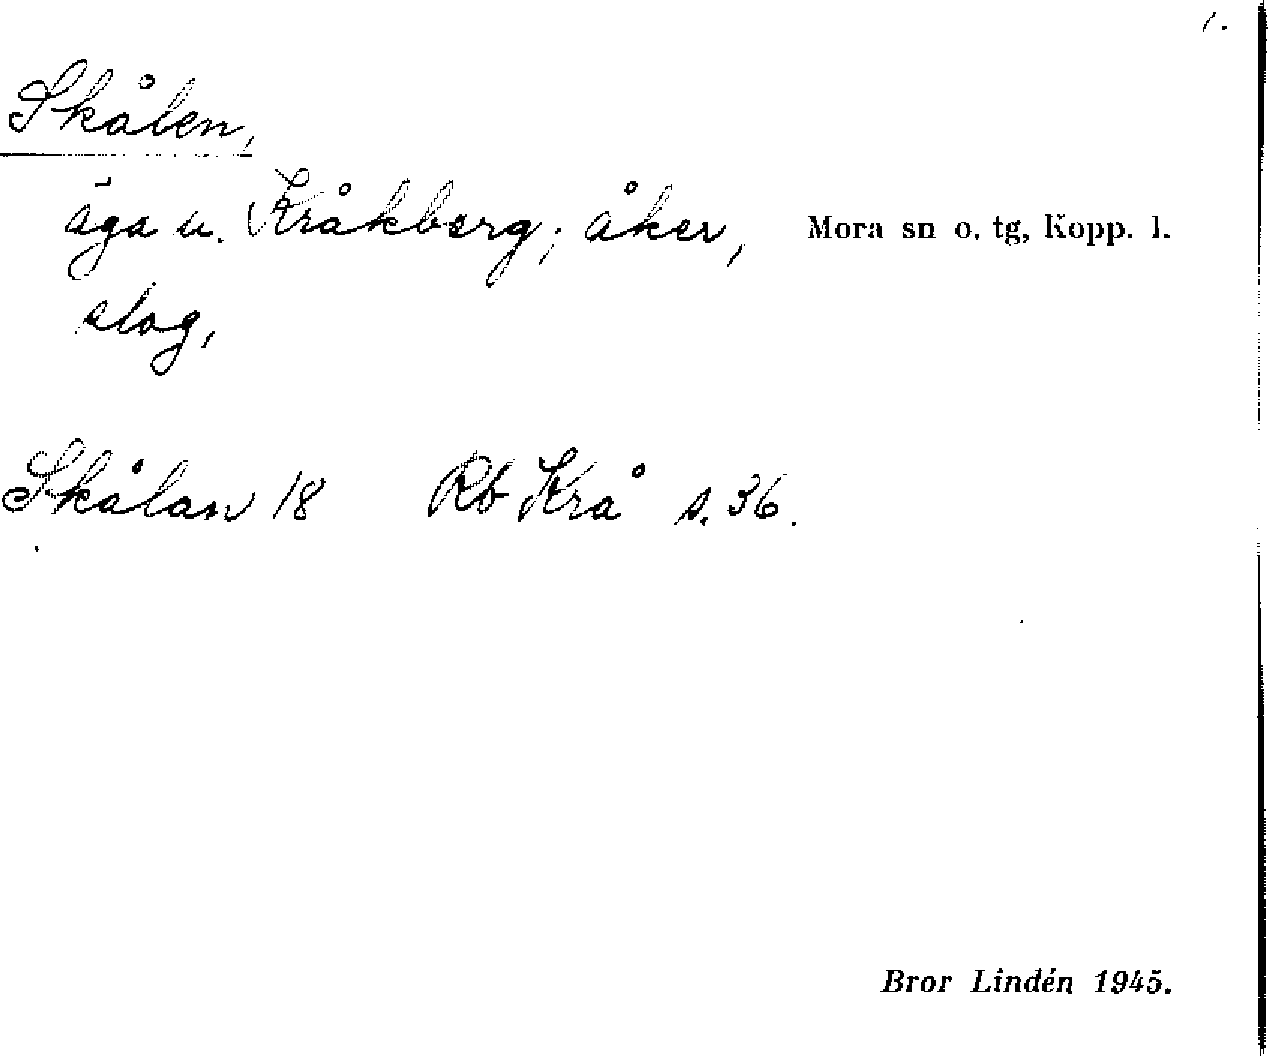 1.
Skålen,
äga u. Kråkberg; åker, Mora sn o. tg, Kopp. l.
slog,
Skålan 18 Rb Krå s. 36.
Bror Lindén 1945.